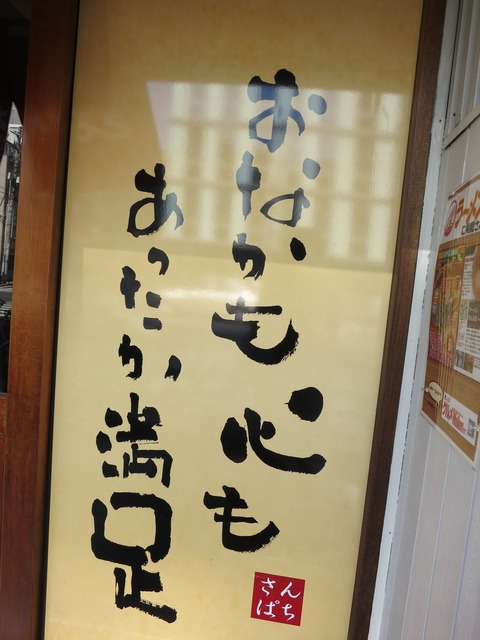 おなかも心も
あったか満足
さんぱち
ラーメン